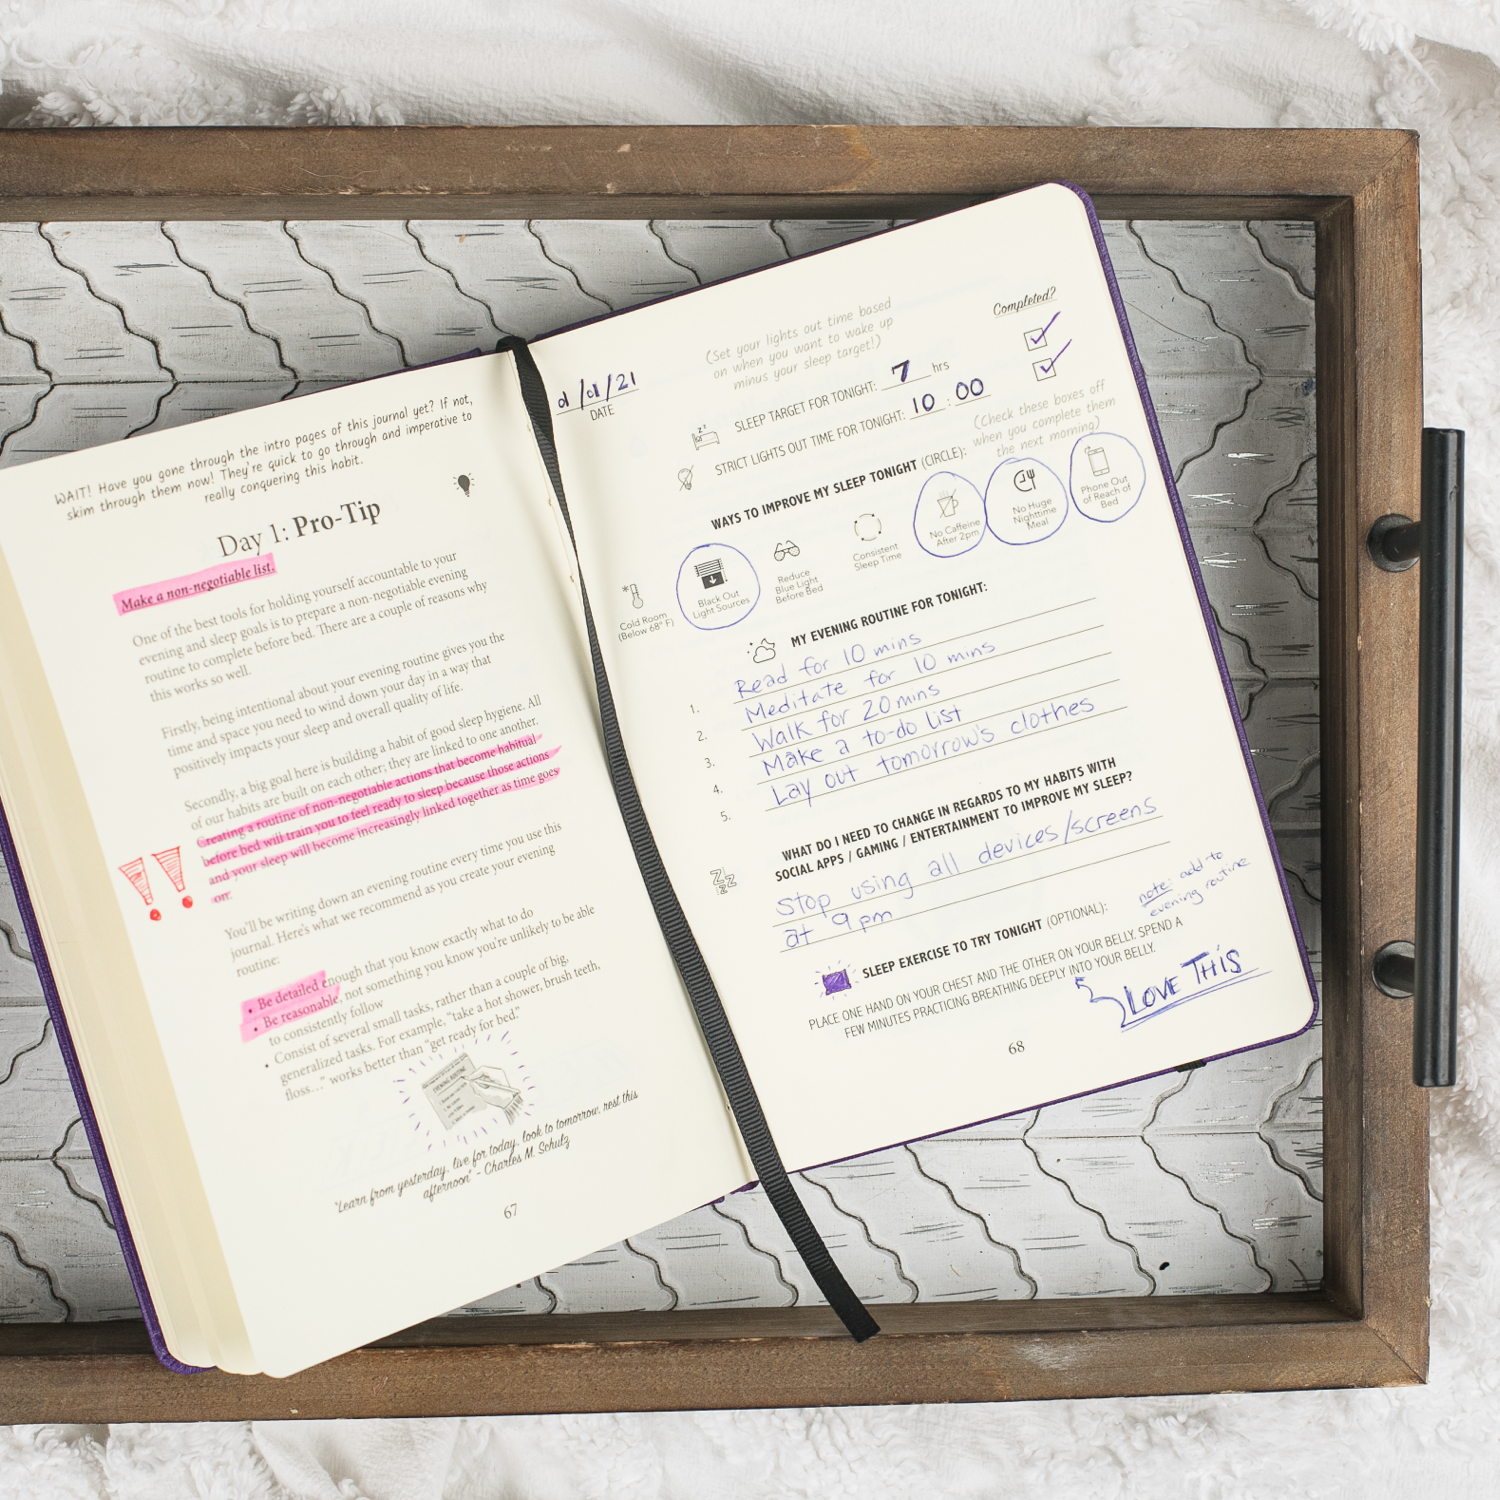 WAIT! Have you gone through the intro pages of this journal yet? If not,
skim through them now! They're quick to go through and imperative to
really conquering this habit.
Day 1: Pro-Tip
Make a non-negotiable list.
One of the best tools for holding yourself accountable to your
evening and sleep goals is to prepare a non-negotiable evening
routine to complete before bed. There are a couple of reasons why
this works so well.
Firstly, being intentional about your evening routine gives you the
time and space you need to wind down your day in a way that
positively impacts your sleep and overall quality of life.
Secondly, a big goal here is building a habit of good sleep hygiene. All
of our habits are built on each other; they are linked to one another.
Creating a routine of non-negotiable actions that become habitual
before bed will train you to feel ready to sleep because those actions
and your sleep will become increasingly linked together as time goes
on.
!!
You'll be writing down an evening routine every time you use this
journal. Here's what we recommend as you create your evening
routine:
• Be detailed enough that you know exactly what to do
• Be reasonable, not something you know you're unlikely to be able
to consistently follow
• Consist of several small tasks, rather than a couple of big,
generalized tasks. For example, "take a hot shower, brush teeth,
floss..." works better than "get ready for bed."
EVENING ROUTINE
"Learn from yesterday, live for today, look to tomorrow, rest this
afternoon" - Charles M. Schulz
67
/21
DATE
(Set your lights out time based
on when you want to wake up
minus your sleep target!)
Completed?
SLEEP TARGET FOR TONIGHT: 7 hrs
STRICT LIGHTS OUT TIME FOR TONIGHT: 10 : 00
(Check these boxes off
when you complete them
the next morning)
WAYS TO IMPROVE MY SLEEP TONIGHT (CIRCLE):
Cold Room
(Below 68° F)
Black Out
Light Sources
Reduce
Blue Light
Before Bed
Consistent
Sleep Time
No Caffeine
After 2pm
No Huge
Nighttime
Meal
Phone Out
of Reach of
Bed
MY EVENING ROUTINE FOR TONIGHT:
1. Read for 10 mins
2. Meditate for 10 mins
3. Walk for 20 mins
4. Make a to-do list
5. Lay out tomorrow's clothes
WHAT DO I NEED TO CHANGE IN REGARDS TO MY HABITS WITH
SOCIAL APPS / GAMING / ENTERTAINMENT TO IMPROVE MY SLEEP?
Stop using all devices/screens
at 9pm
note: add to
evening routine
SLEEP EXERCISE TO TRY TONIGHT (OPTIONAL):
PLACE ONE HAND ON YOUR CHEST AND THE OTHER ON YOUR BELLY. SPEND A
FEW MINUTES PRACTICING BREATHING DEEPLY INTO YOUR BELLY.
LOVE THIS
68